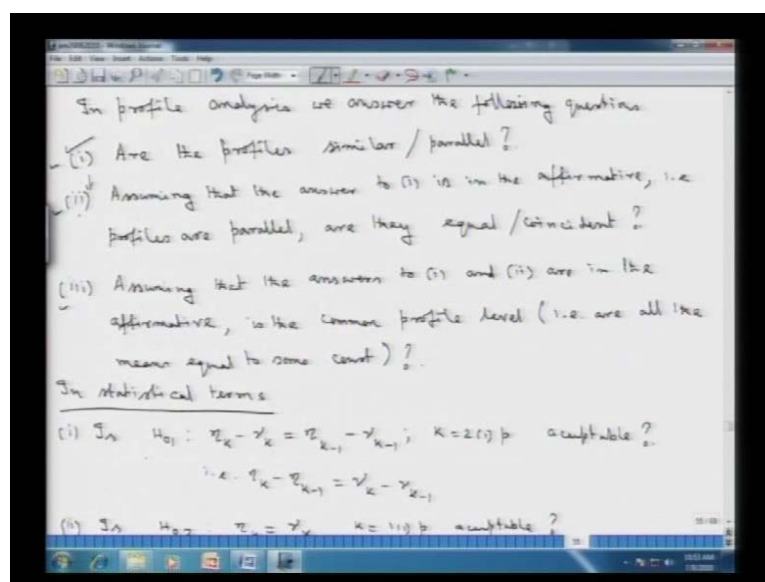 File Edit View Insert Actions Tools Help
Page Width
In profile analysis we answer the following questions
(i) Are the profiles similar / parallel ?
(ii) Assuming that the answer to (i) is in the affirmative, i.e
profiles are parallel, are they equal / coincident ?
(iii) Assuming that the answers to (i) and (ii) are in the
affirmative, is the common profile level (i.e. are all the
means equal to some const) ?.
In statistical terms
(i) Is H₀₁ : η_k - ν_k = η_{k-1} - ν_{k-1} ; k = 2(1) p acceptable ?
i.e. η_k - η_{k-1} = ν_k - ν_{k-1}
(ii) Is H₀₂ : η_k = ν_k k = 1(1) p acceptable ?
10:53 AM